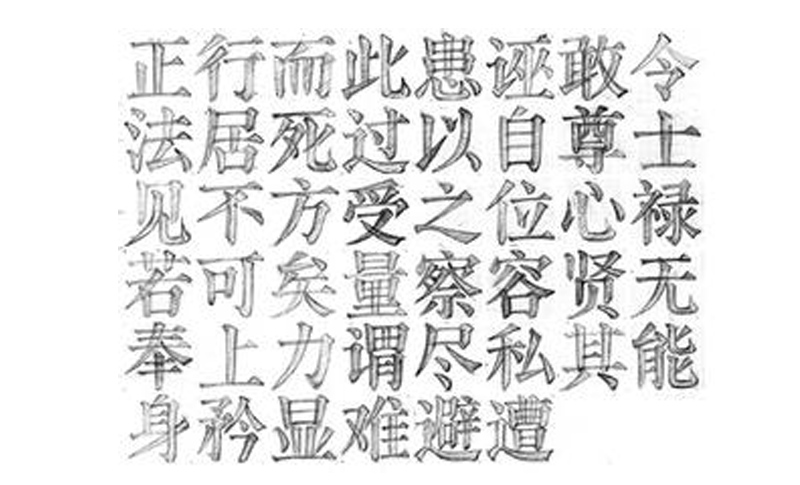 正行而此患诬敢令
法居死过以自尊士
见不方受之位心禄
若可矣量察容贤无
奉上力谓尽私其能
身矜显难避遭